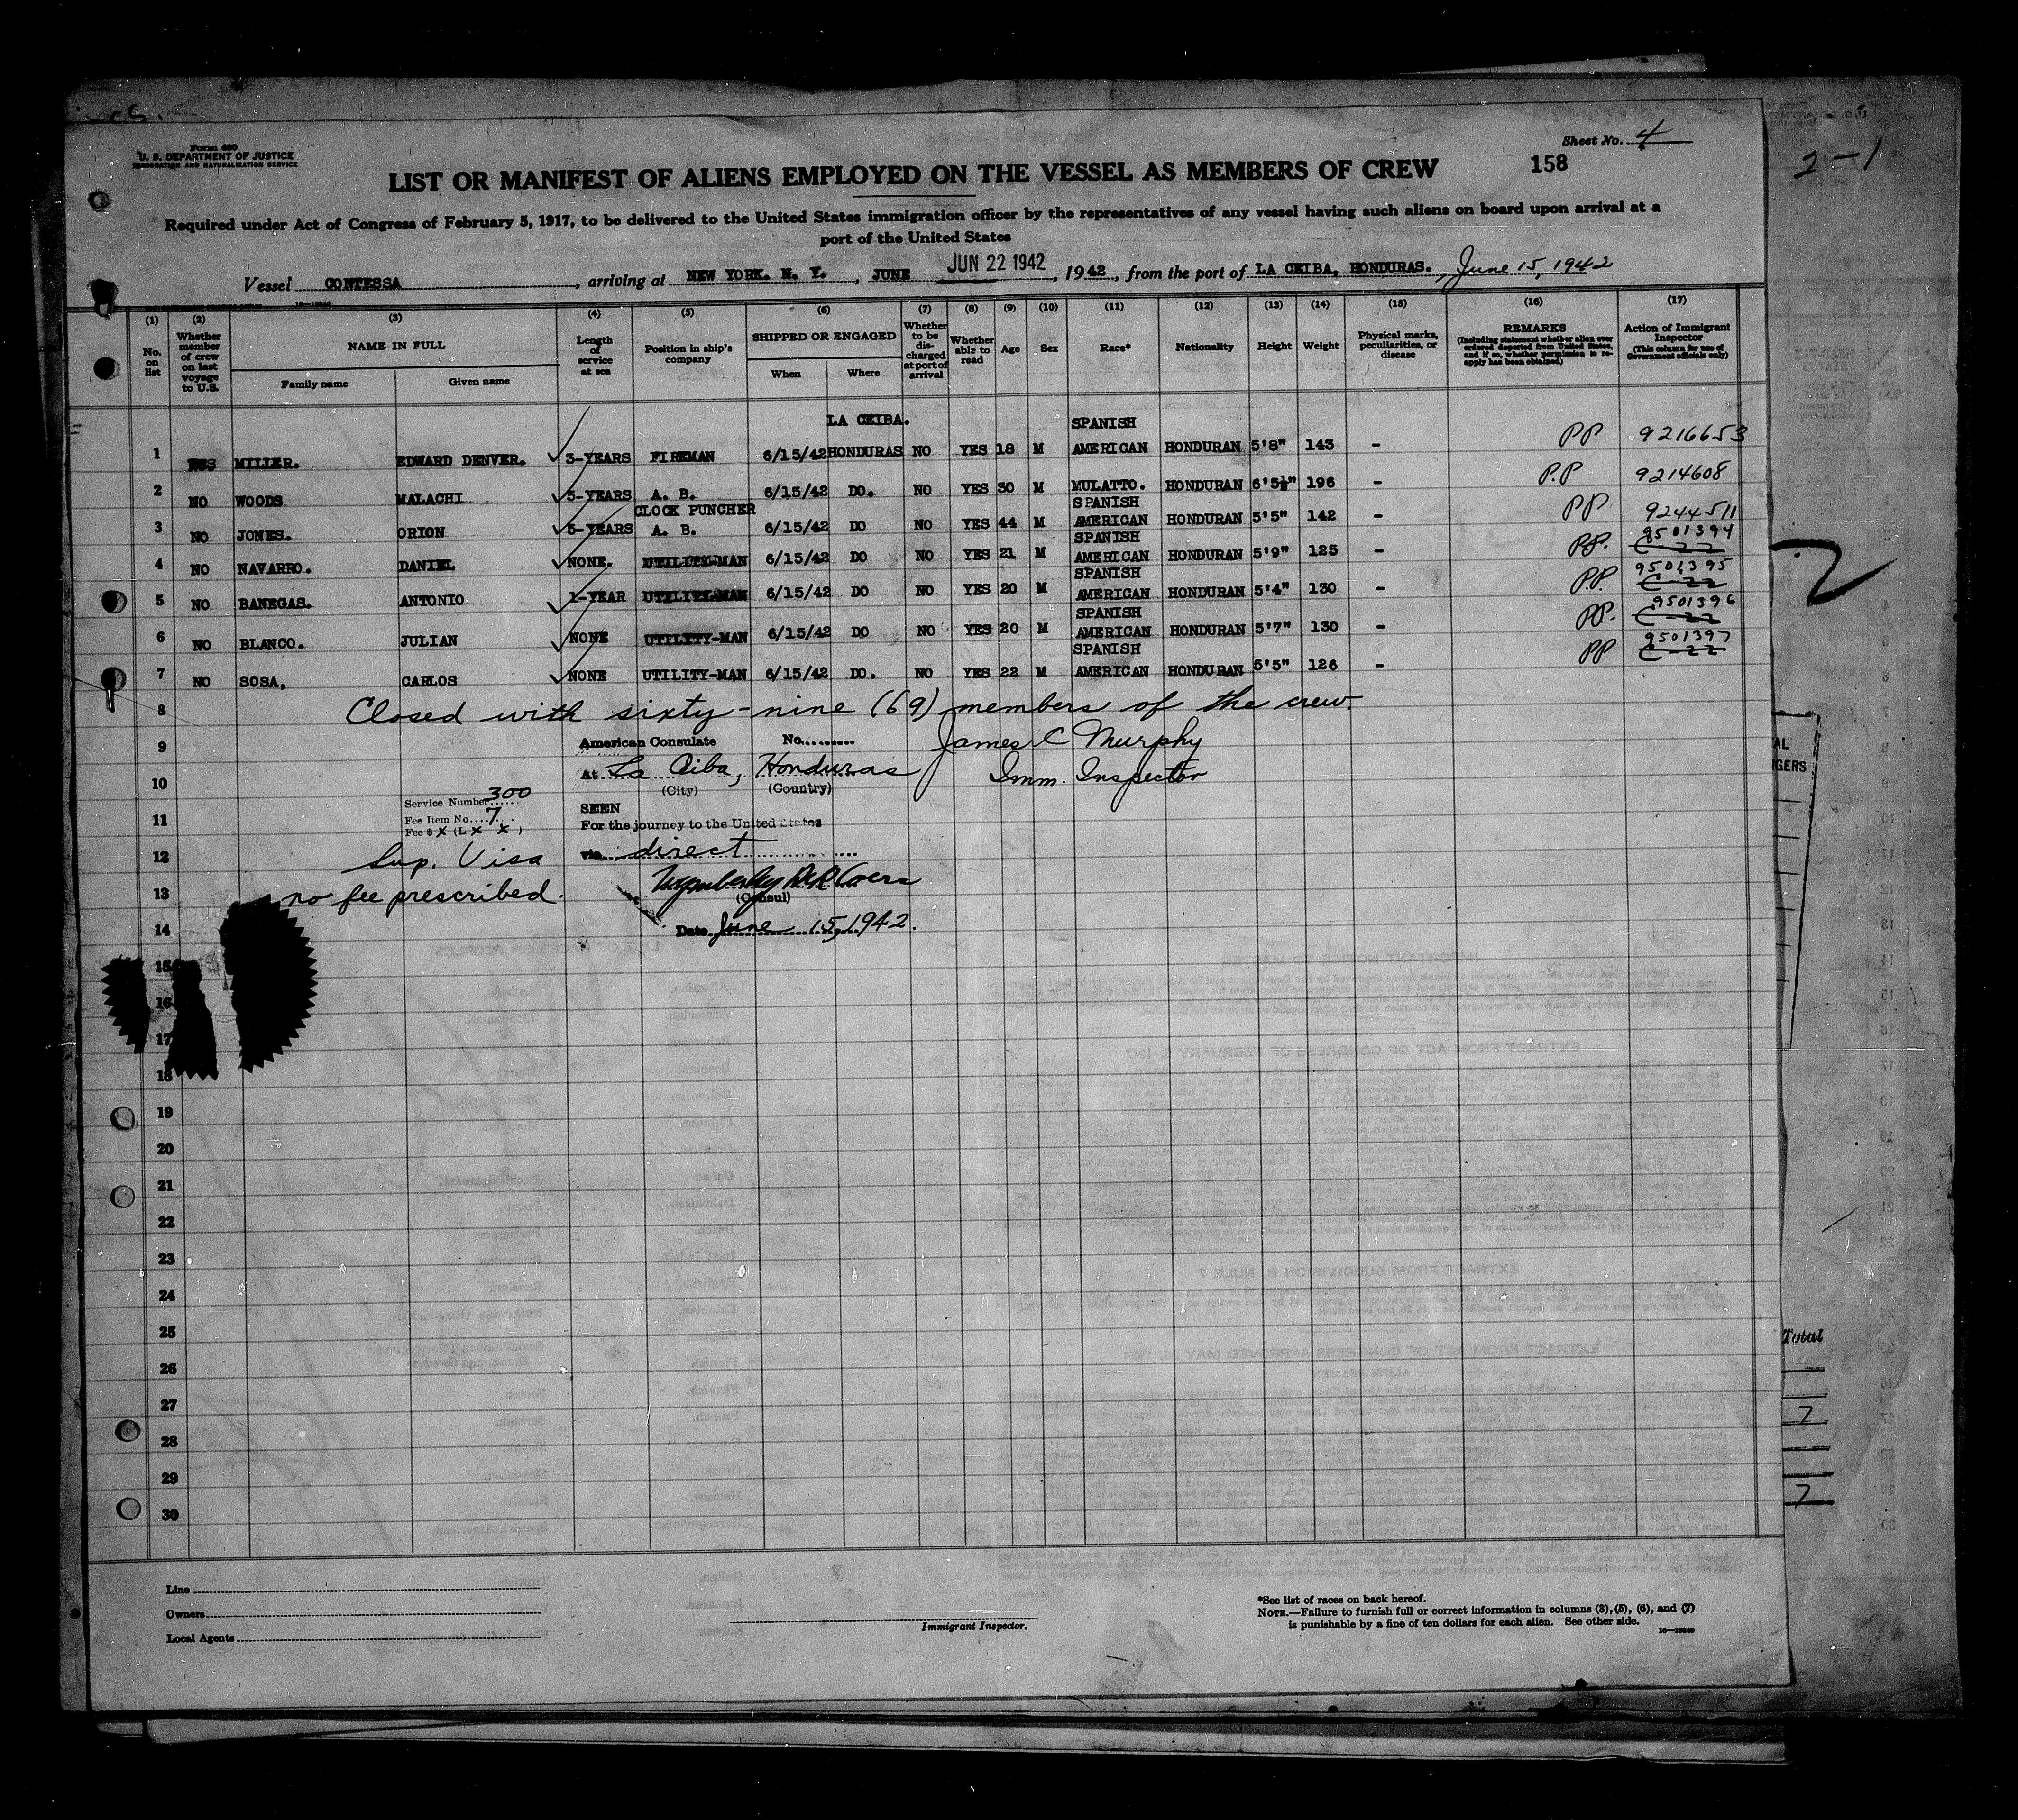 Form 680
U. S. DEPARTMENT OF JUSTICE
IMMIGRATION AND NATURALIZATION SERVICE
Sheet No. 4
158
2-1
LIST OR MANIFEST OF ALIENS EMPLOYED ON THE VESSEL AS MEMBERS OF CREW
Required under Act of Congress of February 5, 1917, to be delivered to the United States immigration officer by the representatives of any vessel having such aliens on board upon arrival at a
port of the United States
Vessel CONTESSA, arriving at NEW YORK. N. Y., JUNE JUN 22 1942, 1942, from the port of LA CEIBA, HONDURAS., June 15, 1942
(1) (2) (3) (4) (5) (6) (7) (8) (9) (10) (11) (12) (13) (14) (15) (16) (17)
No. on list
Whether member of crew on last voyage to U.S.
NAME IN FULL
Family name
Given name
Length of service at sea
Position in ship's company
SHIPPED OR ENGAGED
When
Where
Whether to be discharged at port of arrival
Whether able to read
Age
Sex
Race*
Nationality
Height
Weight
Physical marks, peculiarities, or disease
REMARKS
(Including statement whether alien ever ordered deported from United States, and if so, whether permission to reapply has been obtained)
Action of Immigrant Inspector
(This column for use of Government officials only)
LA CEIBA. SPANISH
1 YES MILLER. EDWARD DENVER. 3-YEARS FIREMAN 6/15/42 HONDURAS NO YES 18 M AMERICAN HONDURAN 5'8" 143 - PP 9216653
2 NO WOODS MALACHI 5-YEARS A. B. 6/15/42 DO. NO YES 30 M MULATTO. HONDURAN 6'5½" 196 - P.P 9214608
CLOCK PUNCHER SPANISH
3 NO JONES. ORION 5-YEARS A. B. 6/15/42 DO NO YES 44 M AMERICAN HONDURAN 5'5" 142 - PP 9244511
SPANISH 9501394
4 NO NAVARRO. DANIEL NONE. UTILITY-MAN 6/15/42 DO NO YES 21 M AMERICAN HONDURAN 5'9" 125 - PP. C-22
SPANISH 9501395
5 NO BANEGAS. ANTONIO 1-YEAR UTILITY-MAN 6/15/42 DO NO YES 20 M AMERICAN HONDURAN 5'4" 130 - PP. C-22
SPANISH 9501396
6 NO BLANCO. JULIAN NONE UTILITY-MAN 6/15/42 DO NO YES 20 M AMERICAN HONDURAN 5'7" 130 - PP. C-22
SPANISH 9501397
7 NO SOSA. CARLOS NONE UTILITY-MAN 6/15/42 DO. NO YES 22 M AMERICAN HONDURAN 5'5" 126 - PP C-22
2
8 Closed with sixty-nine (69) members of the crew.
9 American Consulate No......... James C Murphy
10 At La Ceiba, Honduras Imm. Inspector
(City) (Country)
Service Number 300
SEEN
11 Fee Item No. 7
For the journey to the United States
Fee $ x (L x x )
12 Sup. Visa via direct
13 no fee prescribed.
(Consul)
14 Date June 15, 1942.
15
16
17
18
19
20
21
22
23
24
25
26
27
28
29
30
GERS
Total
7
7
Line
Owners
Local Agents
Immigrant Inspector.
*See list of races on back hereof.
NOTE.—Failure to furnish full or correct information in columns (3), (5), (6), and (7)
is punishable by a fine of ten dollars for each alien. See other side.